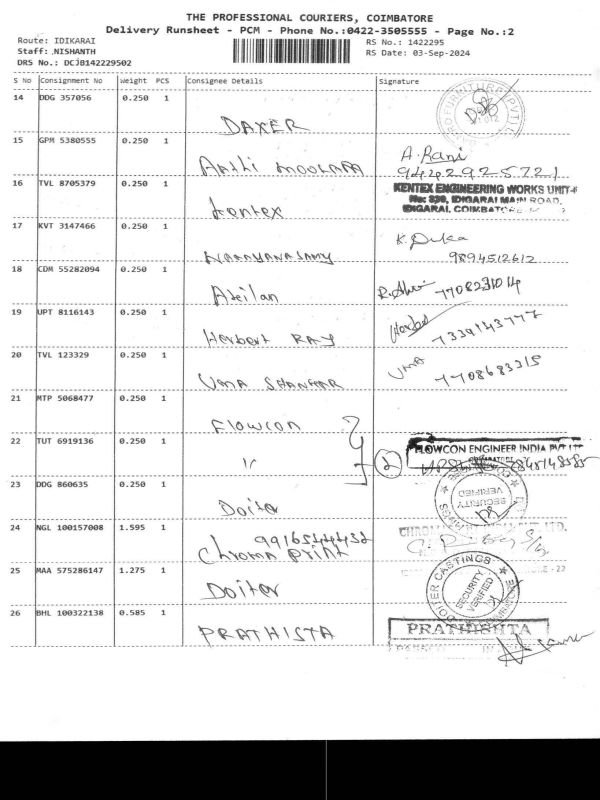 THE PROFESSIONAL COURIERS, COIMBATORE
Delivery Runsheet - PCM - Phone No.:0422-3505555 - Page No.:2
Route: IDIKARAI
Staff: .NISHANTH
DRS No.: DCJB142229502
RS No.: 1422295
RS Date: 03-Sep-2024
S No Consignment No Weight PCS Consignee Details Signature
14 DDG 357056 0.250 1
DAXER
15 GPM 5380555 0.250 1
A. Rani
9442925721
16 TVL 8705379 0.250 1
Kentex
KENTEX ENGINEERING WORKS UNIT-
IDIGARAI MAIN ROAD,
IDIGARAI, COIMBATORE
17 KVT 3147466 0.250 1
NARAYANASAMY
K. Deka
9894512612
18 CDM 55282094 0.250 1
Akilan
7708231014
19 UPT 8116143 0.250 1
Herbert RAY
Herbert
7339143777
20 TVL 123329 0.250 1
UMA SHANKAR
UMA
7708683315
21 MTP 5068477 0.250 1
Flowcon
22 TUT 6919136 0.250 1
2
FLOWCON ENGINEER INDIA PVT LTD
23 DDG 860635 0.250 1
Doitor
SECURITY
VERIFIED
24 NGL 100157008 1.595 1
9916544432
Chroma print
25 MAA 575286147 1.275 1
Doitor
CASTINGS
SECURITY
VERIFIED
26 BHL 100322138 0.585 1
PRATHISTA
PRATHISHTA